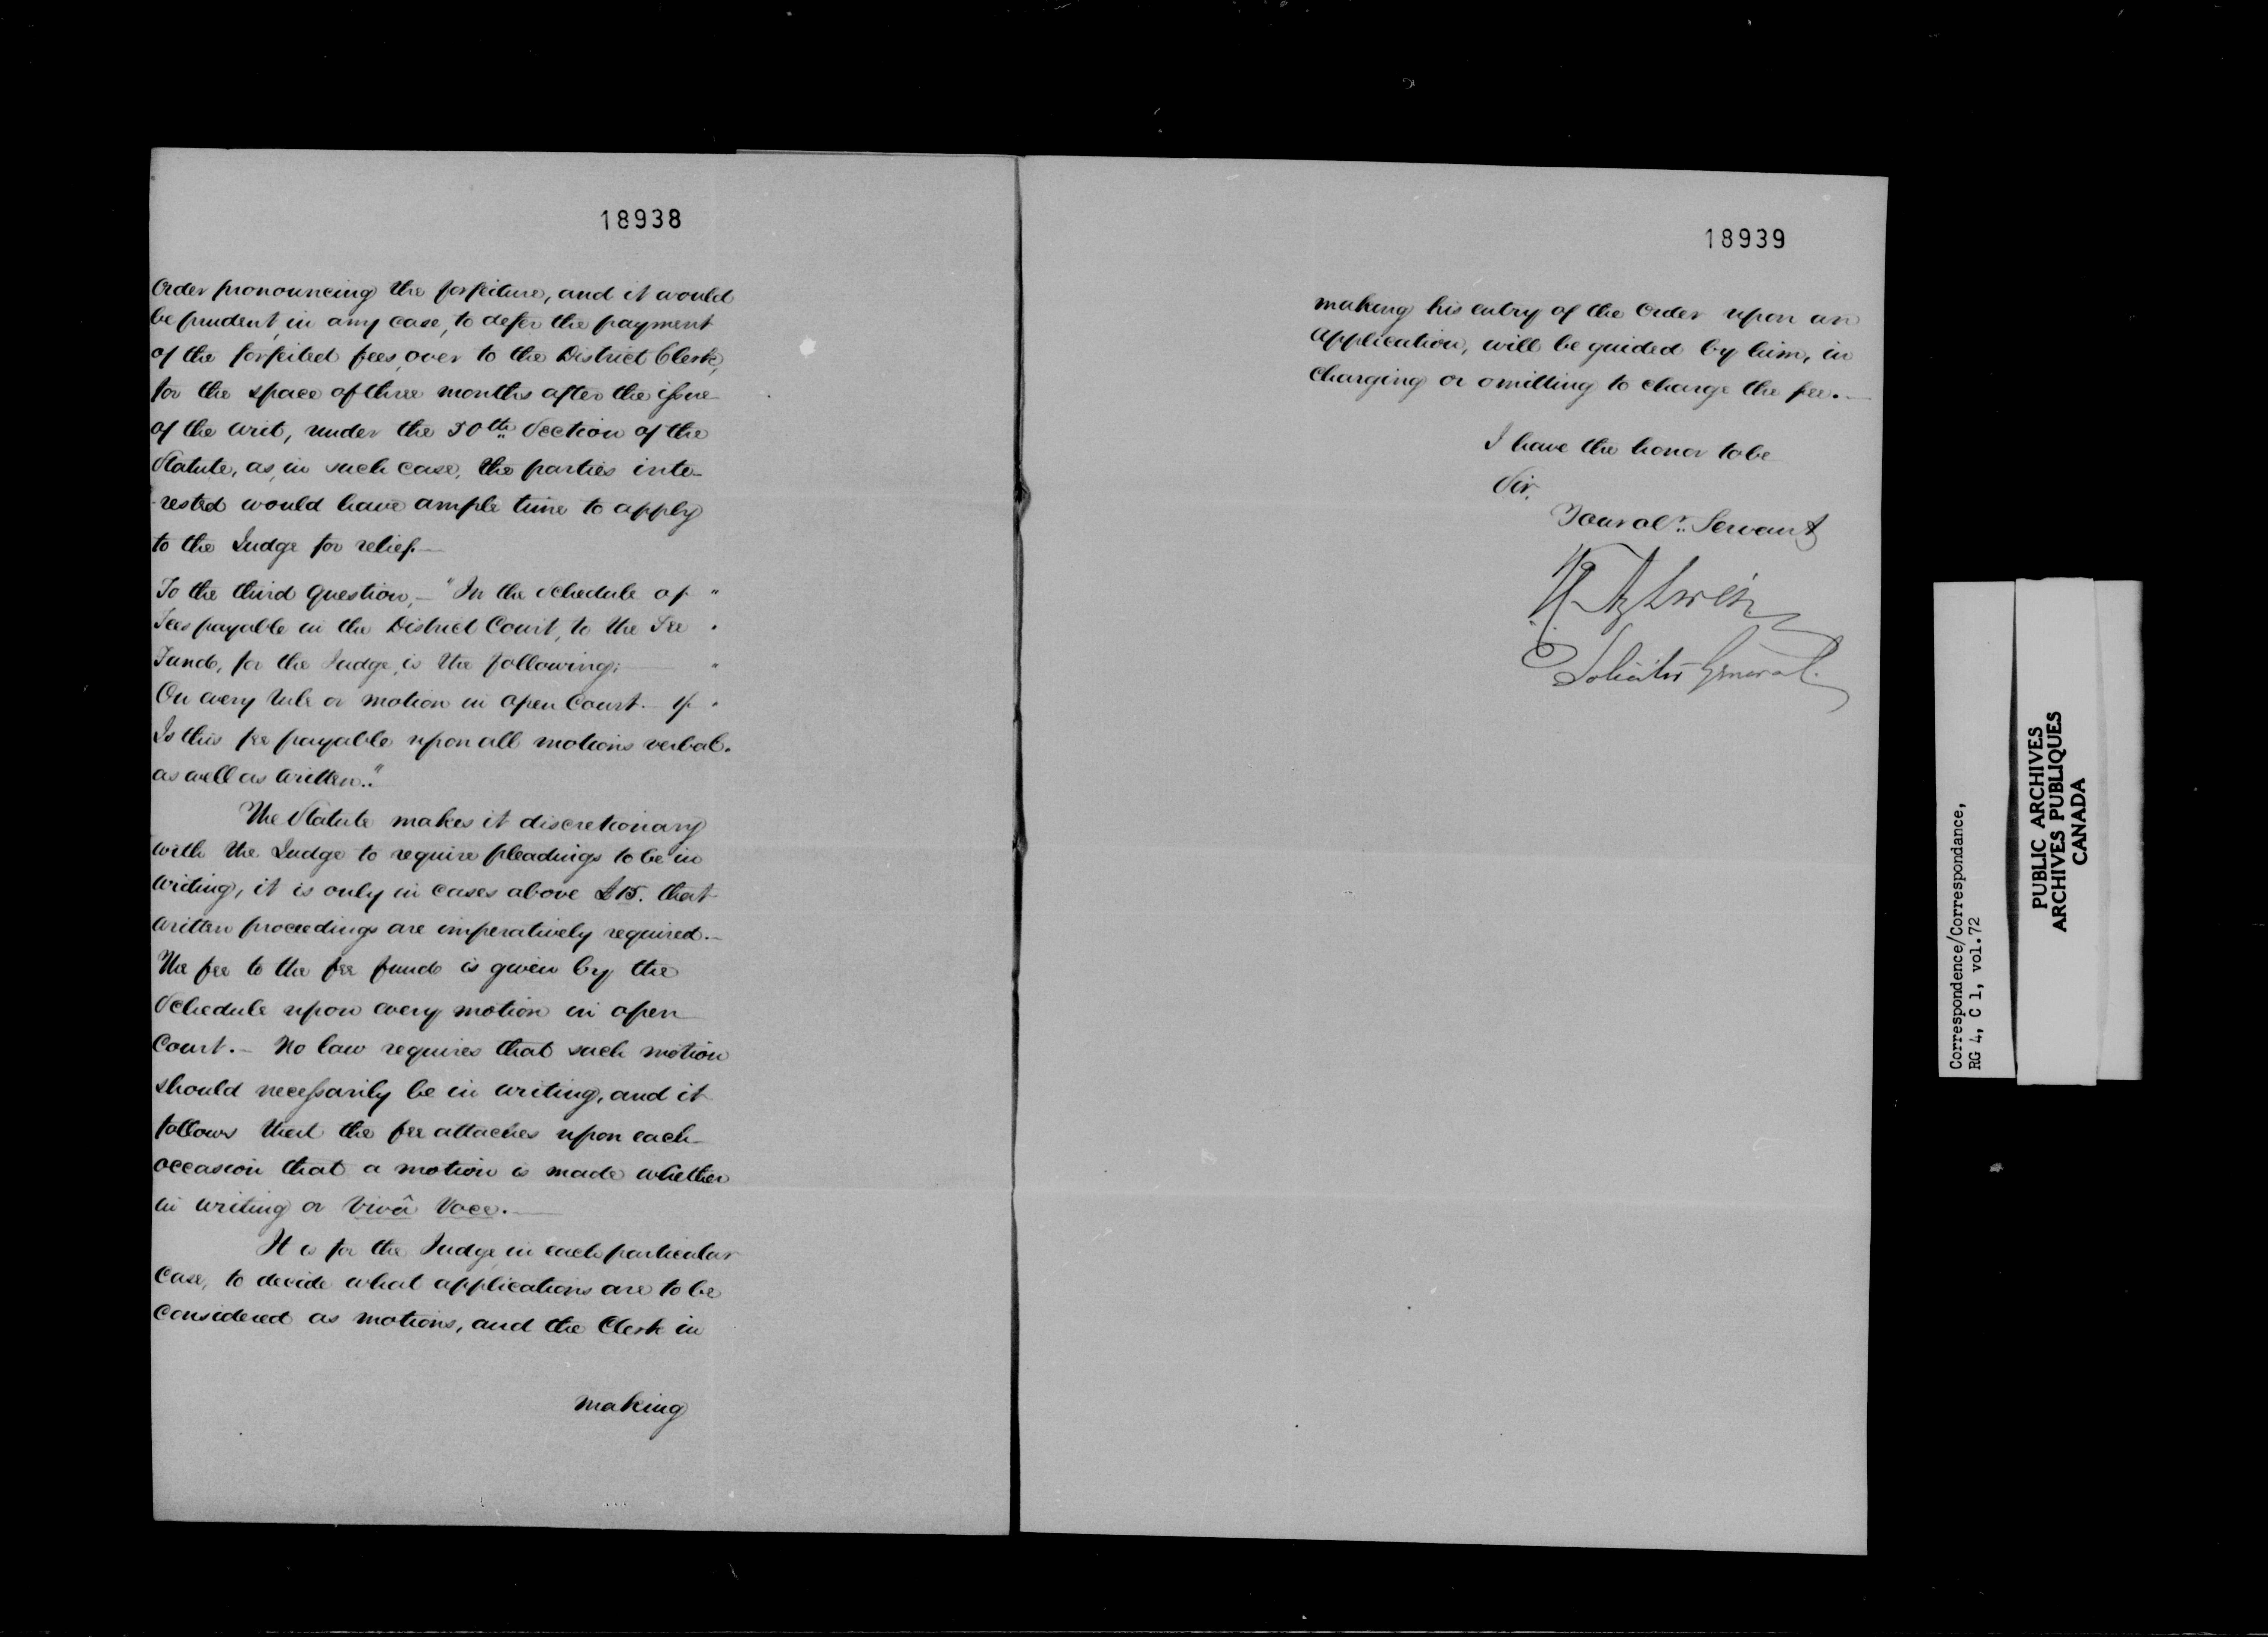 18938
Order pronouncing the forfeiture, and it would
be prudent, in any case, to defer the payment
of the forfeited fees, over to the District Clerk,
for the space of three months after the issue
of the writ, under the 50th Section of the
Statute, as, in such case, the parties inte-
-rested would have ample time to apply
to the Judge for relief.—
To the third Question,— "In the Schedule of "
Fees payable in the District Court, to the Fee "
Fund, for the Judge, is the following:— "
On every rule or motion in open Court. 1/- "
Is this fee payable upon all motions verbal.
as well as written."
The Statute makes it discretionary
with the Judge to require pleadings to be in
writing, it is only in cases above £15. that
written proceedings are imperatively required.—
The fee to the fee fund is given by the
Schedule upon every motion in open
Court.— No law requires that such motion
should necessarily be in writing, and it
follows that the fee attaches upon each
occasion that a motion is made whether
in writing or Vivâ Voce.—
It is for the Judge, in each particular
Case, to decide what applications are to be
considered as motions, and the Clerk in
making
18939
making his entry of the Order upon an
Application, will be guided by him, in
charging or omitting to charge the fee.—
I have the honor to be
Sir.
Your obt. Servant
Solicitor General.
Correspondence/Correspondance,
RG 4, C 1, vol.72
PUBLIC ARCHIVES
ARCHIVES PUBLIQUES
CANADA